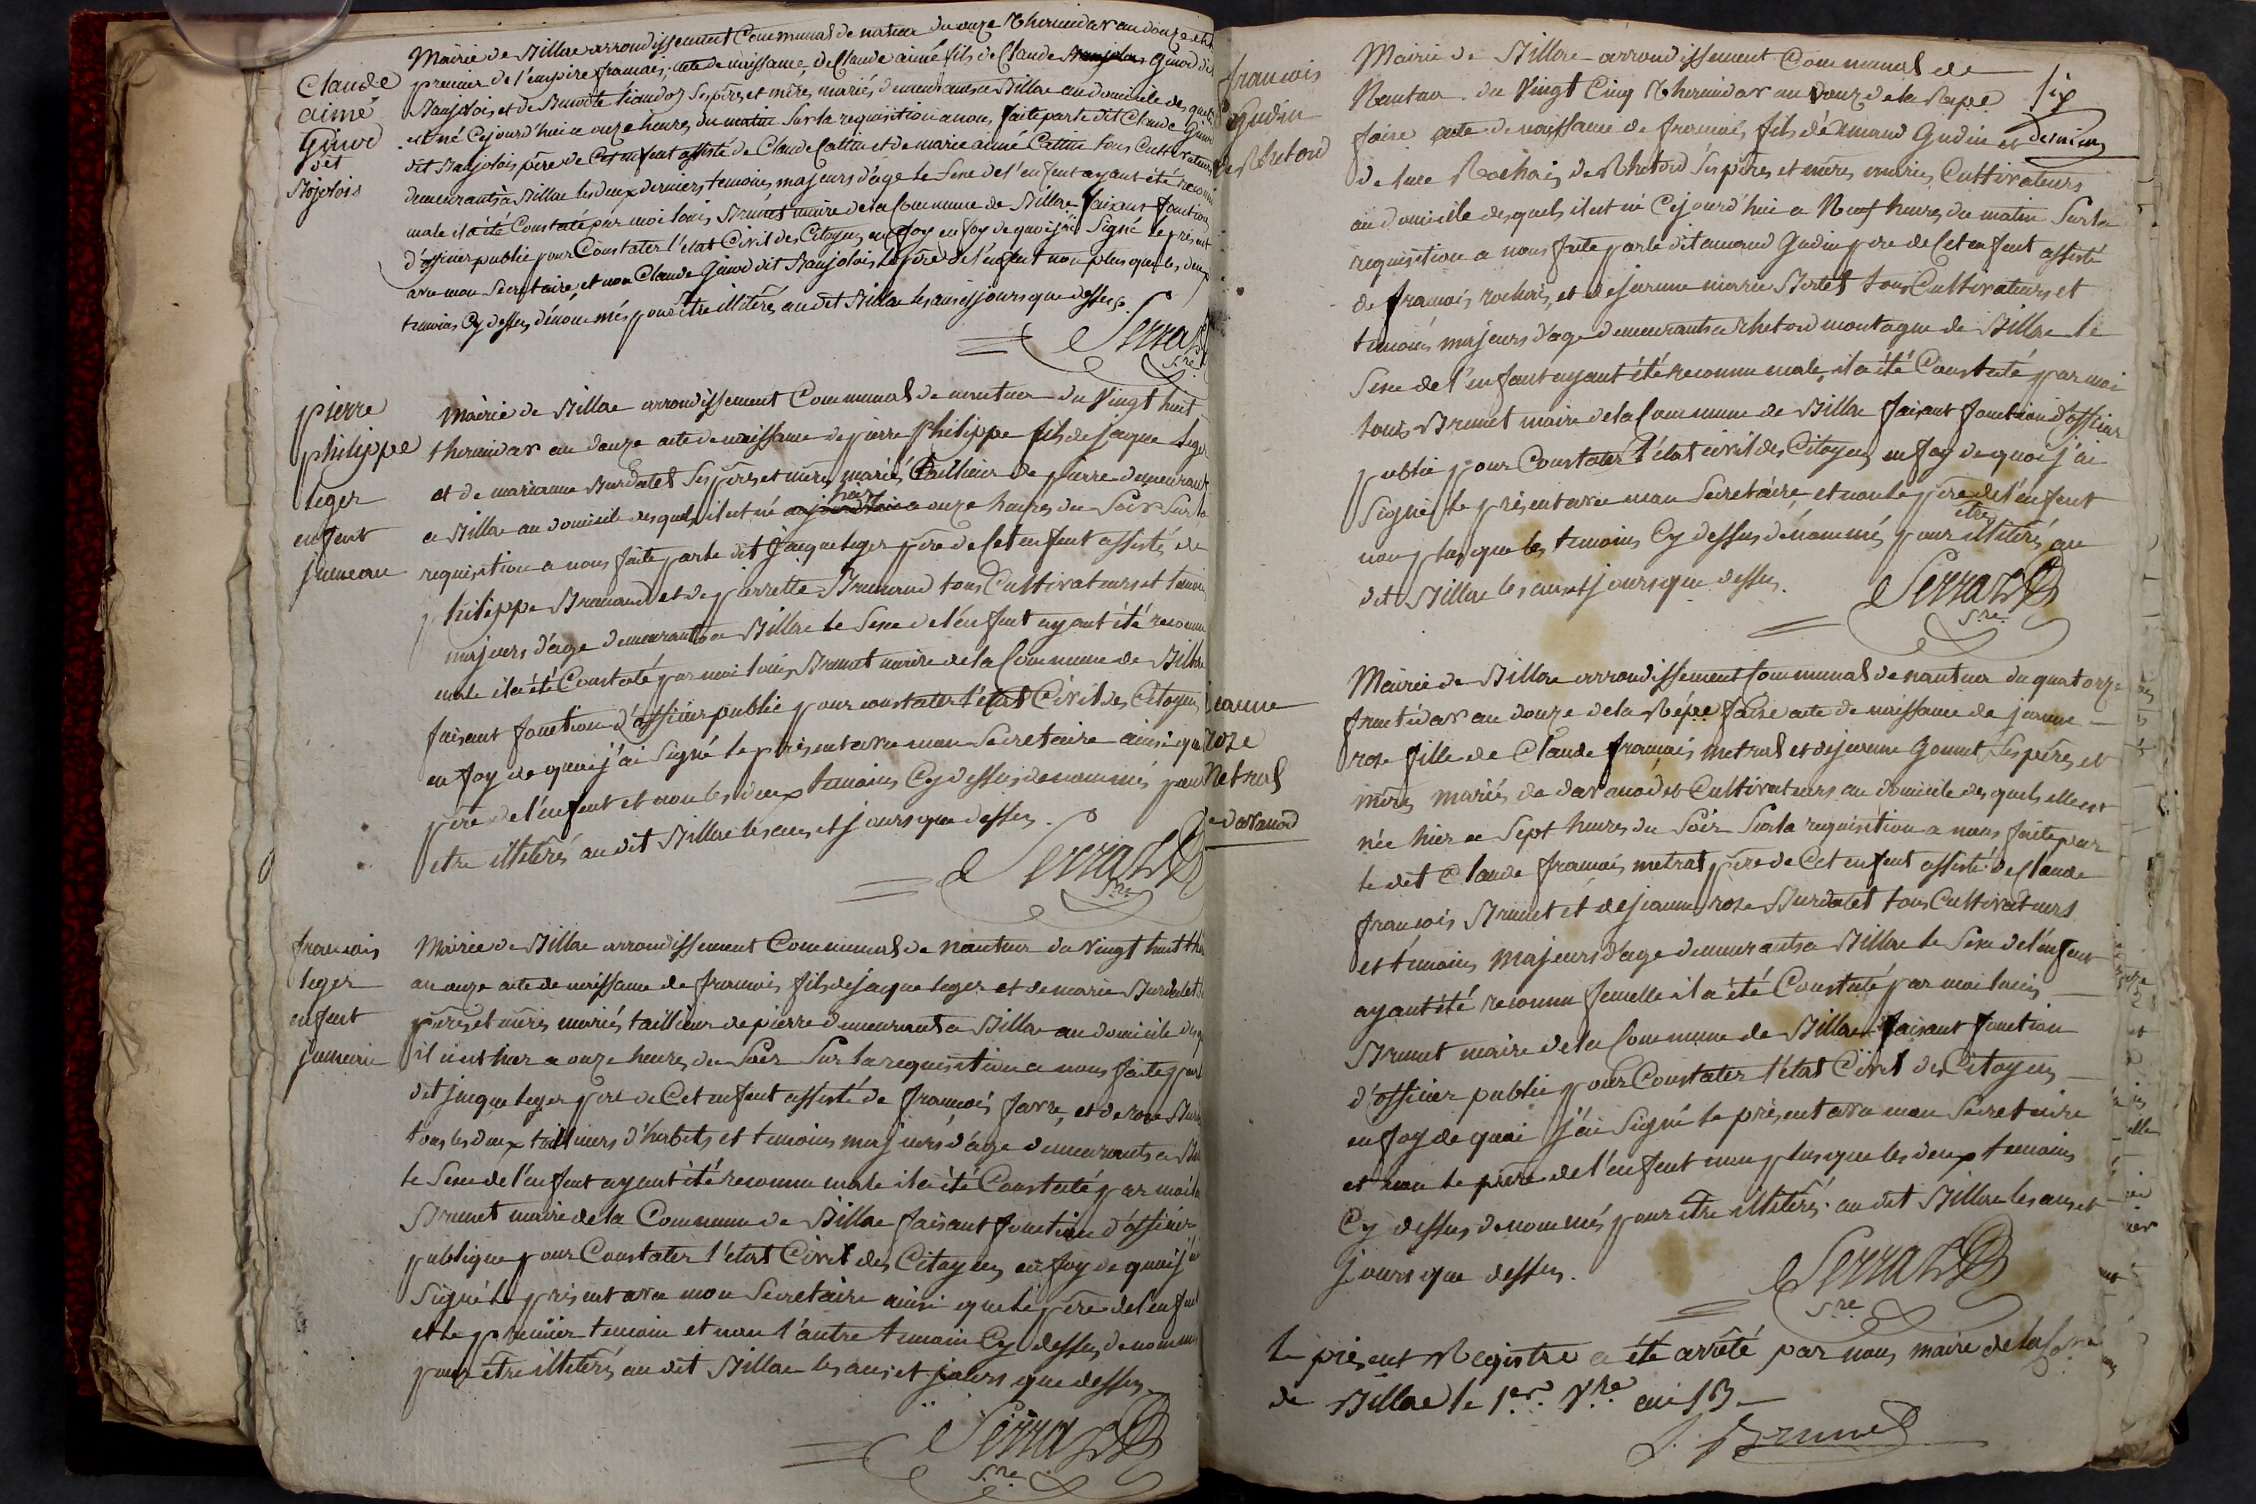 Claude
aimé
Ginod
dit
Mairie de Billiat arrondissement Communal de nantua du onze Thermidor an douze et le
premier de l'empire françois, acte de naissance de Claude aimé fils de Claude Ginod dit
et de ses père et mère, mariés, demeurants a Billiat au domicile des quels
est né Cejourd'hui a onze heures du matin Sur la requisition a nous faite par le dit Claude Ginod
dit père de Cet enfent assisté de Claude et de marie aimé tous Cultivateurs
demeurants a Billiat les deux derniers temoins majeurs d'age le Sexe de l'enfent ayant été reconnu
male il a été Constaté par moi louis Brunet maire de la Commune de Billiat faisant fonction
d'officier public pour Constater l'etat Civil des Citoyens en foy en foy de quoi j'ai Signé le présent
avec mon Secretaire et non Claude Ginod dit le père de l'enfent non plus que les deux
temoins Cy dessus dénommés pour être illitérés au dit Billiat les ans et jours que dessus.
Serra
Sre
pierre
philippe
leger
enfent
jumeau
Mairie de Billiat arrondissement Communal de nantua du Vingt huit
thermidor an douze acte de naissance de pierre philippe fils de jaque leger
et de marianne Burdalet Ses père et mère mariés tailleur de pierre demeurant
a Billiat au domicile desquels il est né hier a onze heures du Soir Sur la
requisition a nous faite par le dit jaque leger père de Cet enfent assisté de
philippe et de pierrette tous Cultivateurs et temoins
majeurs d'age demeurants a Billiat le Sexe de l'enfent ayant été reconnu
male il a été Constaté par moi louis Brunet maire de la Commune de Billiat
faisant fonction d'officier public pour constater l'etat Civil des Citoyens
en foy de quoi j'ai Signé le présent avec mon Secretaire ainsi que
père de l'enfent et non les deux temoins Cy dessus denommés pour
etre illitérés au dit Billiat les ans et jours que dessus.
Serra
Sre
francois
leger
enfent
jumeau
Mairie de Billiat arrondissement Communal de nantua du Vingt huit
an onze acte de naissance de francois fils de jaque leger et de marie Burdalet
père et mère mariés tailleur de pierre demeurant a Billiat au domicile
il est hier a onze heures du Soir Sur la requisition a nous faite par
dit jaque leger père de Cet enfent assisté de françois favre, et de rose
tous les deux tailleurs d'habits et temoins majeurs d'age demeurants a
le Sexe de l'enfent ayant été reconnu male il a été Constaté par moi
Brunet maire de la Commune de Billiat faisant fonction d'officier
publique pour Constater l'etat Civil des Citoyens en foy de quoi j'ai
Signé le présent avec mon Secretaire ainsi que le père de l'enfent
et le premier temoin et non l'autre temoin Cy dessus denommé
pour être illitérés au dit Billiat les ans et jours que dessus
Serra
Sre
francois
Gudin
de Rhetord
Mairie de Billiat arrondissement Communal de
Nantua du Vingt Cinq Thermidor an Douz de la Repu
faire acte de naissance de francois fils d'Amand Gudin et
Six
dernier
de Rochaix de Rhetord Ses père et mère mariés Cultivateurs
au domicile desquels il est né Cejourd'hui a Neuf heures du matin Sur la
requisition a nous faite par le dit amand Gudin père de Cet enfent assisté
de francois rochaix, et de jeanne marie tous Cultivateurs et
temoins majeurs d'age demeurants a Rhetord montagne de Billiat le
Sexe de l'enfant ayant été reconnu male, il a été Constaté par moi
louis Brunet maire de la Commune de Billiat faisant fonction d'officier
public pour Constater l'état civil des Citoyens en foy de quoi j'ai
Signé le présent avec mon Secretaire, et non le père de l'enfent
non plus que les temoins Cy dessus dénommés pour être illitérés au
dit Billiat les ans et jours que dessus.
Serra
Sre
jeanne
roze
Metral
de davanod
Mairie de Billiat arrondissement Communal de nantua du quatorze
fructidor an douze de la Répu faire acte de naissance de jeanne
rose fille de Claude françois metral et de jeanne Gonnet Ses père et
mère mariés de davanod et Cultivateurs au domicile des quels elle est
née hier a Sept heures du Soir Sur la requisition a nous faite par
le dit Claude francois metral père de Cet enfent assisté de Claude
francois Brunet et de jeanne rose Burdalet tous Cultivateurs
et temoins majeurs d'age demeurants a Billiat le Sexe de l'enfent
ayant été reconnu femelle il a été Constaté par moi louis
Brunet maire de la Commune de Billiat faisant fonction
d'officier public pour Constater l'etat Civil des Citoyens
en foy de quoi j'ai Signé le présent avec mon Secretaire
et non le père de l'enfent non plus que les deux temoins
Cy dessus denommés pour être illitérés au dit Billiat les ans et
jours que dessus.
Serra
Sre
le présent Registre a été arrêté par nous maire de la Cone
de Billiat le 1er Vre an 13
Brunet